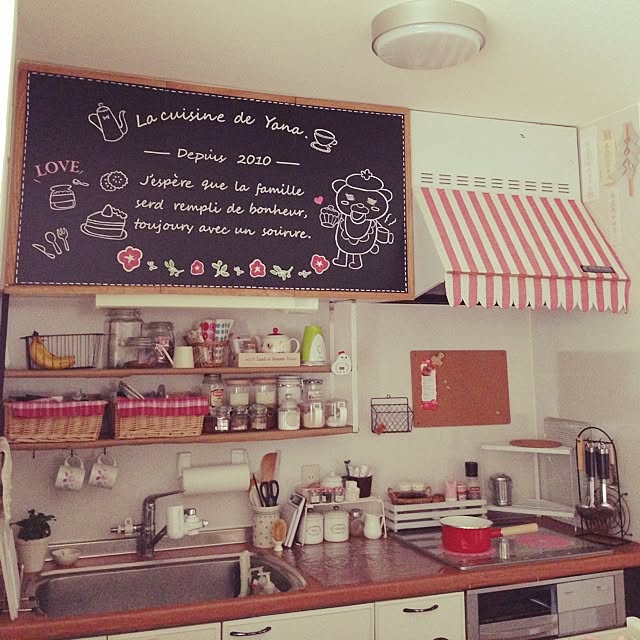 La cuisine de Yana.
Depuis 2010
LOVE
J'espère que la famille
serd rempli de bonheur,
toujoury avec un sourire.